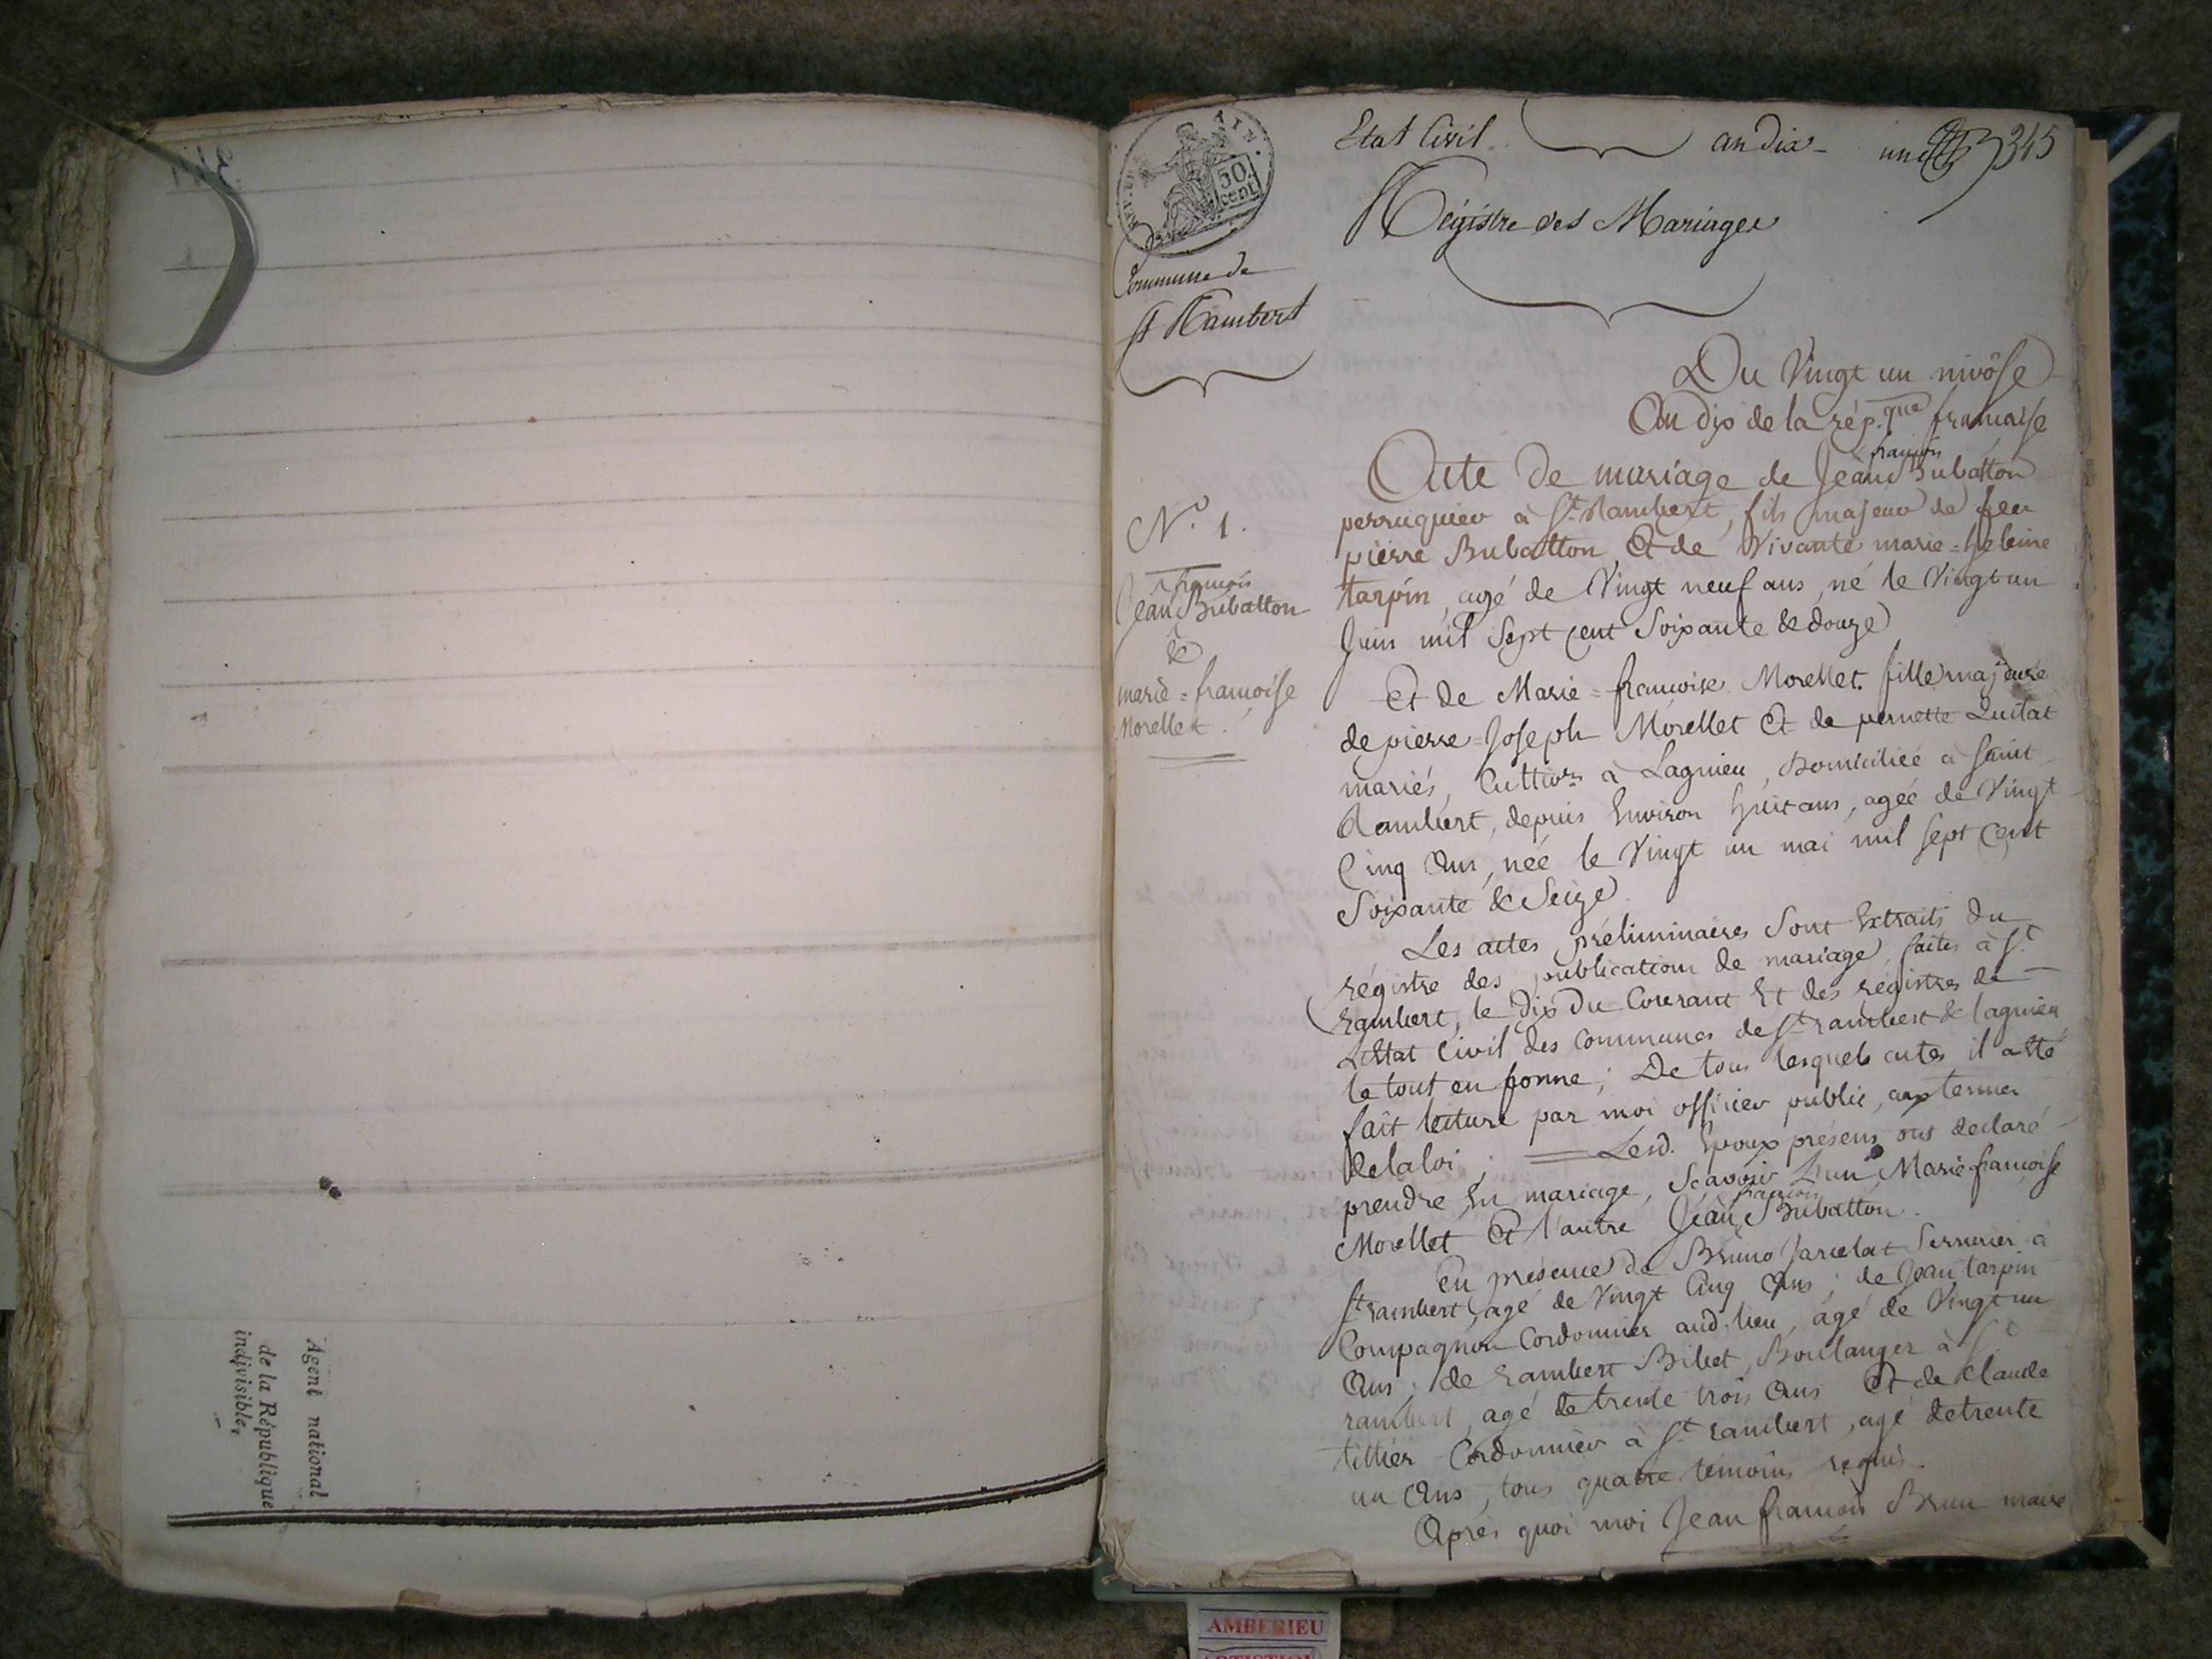 Agent national
de la République
indivisible,
AIN.
50.
cent
Etat Civil
an dix
345
Régistre des Mariages
Commune de
St Rambert
Du Vingt un nivôse
An dix de la rép.que francaise
N.o 1.
francois
Jean Bubatton
&
marie=francoise
Morellet.
francois
Acte de mariage de Jean Bubatton
perruquier à St. Rambert, fils majeur de feu
pierre Bubatton Et de Vivante marie=heleine
tarpin, agé de Vingt neuf ans, né le Vingt un
Juin mil Sept cent Soixante & douze
Et de Marie=francoise Morellet fille majeure
de pierre=Joseph Morellet Et de pernette Quitat
mariés, Cultivrs à Lagnieu, Domiciliée à Saint
Rambert, depuis Environ huit ans, agée de Vingt
Cinq Ans, née le Vingt un mai mil sept cent
Soixante & Seize
Les actes préliminaires Sont Extraits du
régistre des publications de mariage, faites à St
rambert, le dix du Courant Et des régistres de
L'Etat Civil des communes de St rambert & lagnieu
le tout en forme; De tous lesquels actes il a Eté
fait lecture par moi officier public, aux termes
de la loi; Lesd. Epoux présens ont déclaré
prendre En mariage, Scavoir L'un, Marie francoise
francois
Morellet Et l'autre Jean Bubatton.
En présence de Bruno Jarcelat Serrurier à
St rambert, agé de Vingt Cinq Ans; de Jean tarpin
Compagnon Cordonnier aud. lieu, agé de Vingt un
Ans; de rambert Bibet, Boulanger à St
rambert, agé de trente trois Ans Et de Claude
tillier Cordonnier à St rambert, agé de trente
un Ans, tous quatre témoins requis.
Après quoi moi Jean francois Brun maire
AMBERIEU